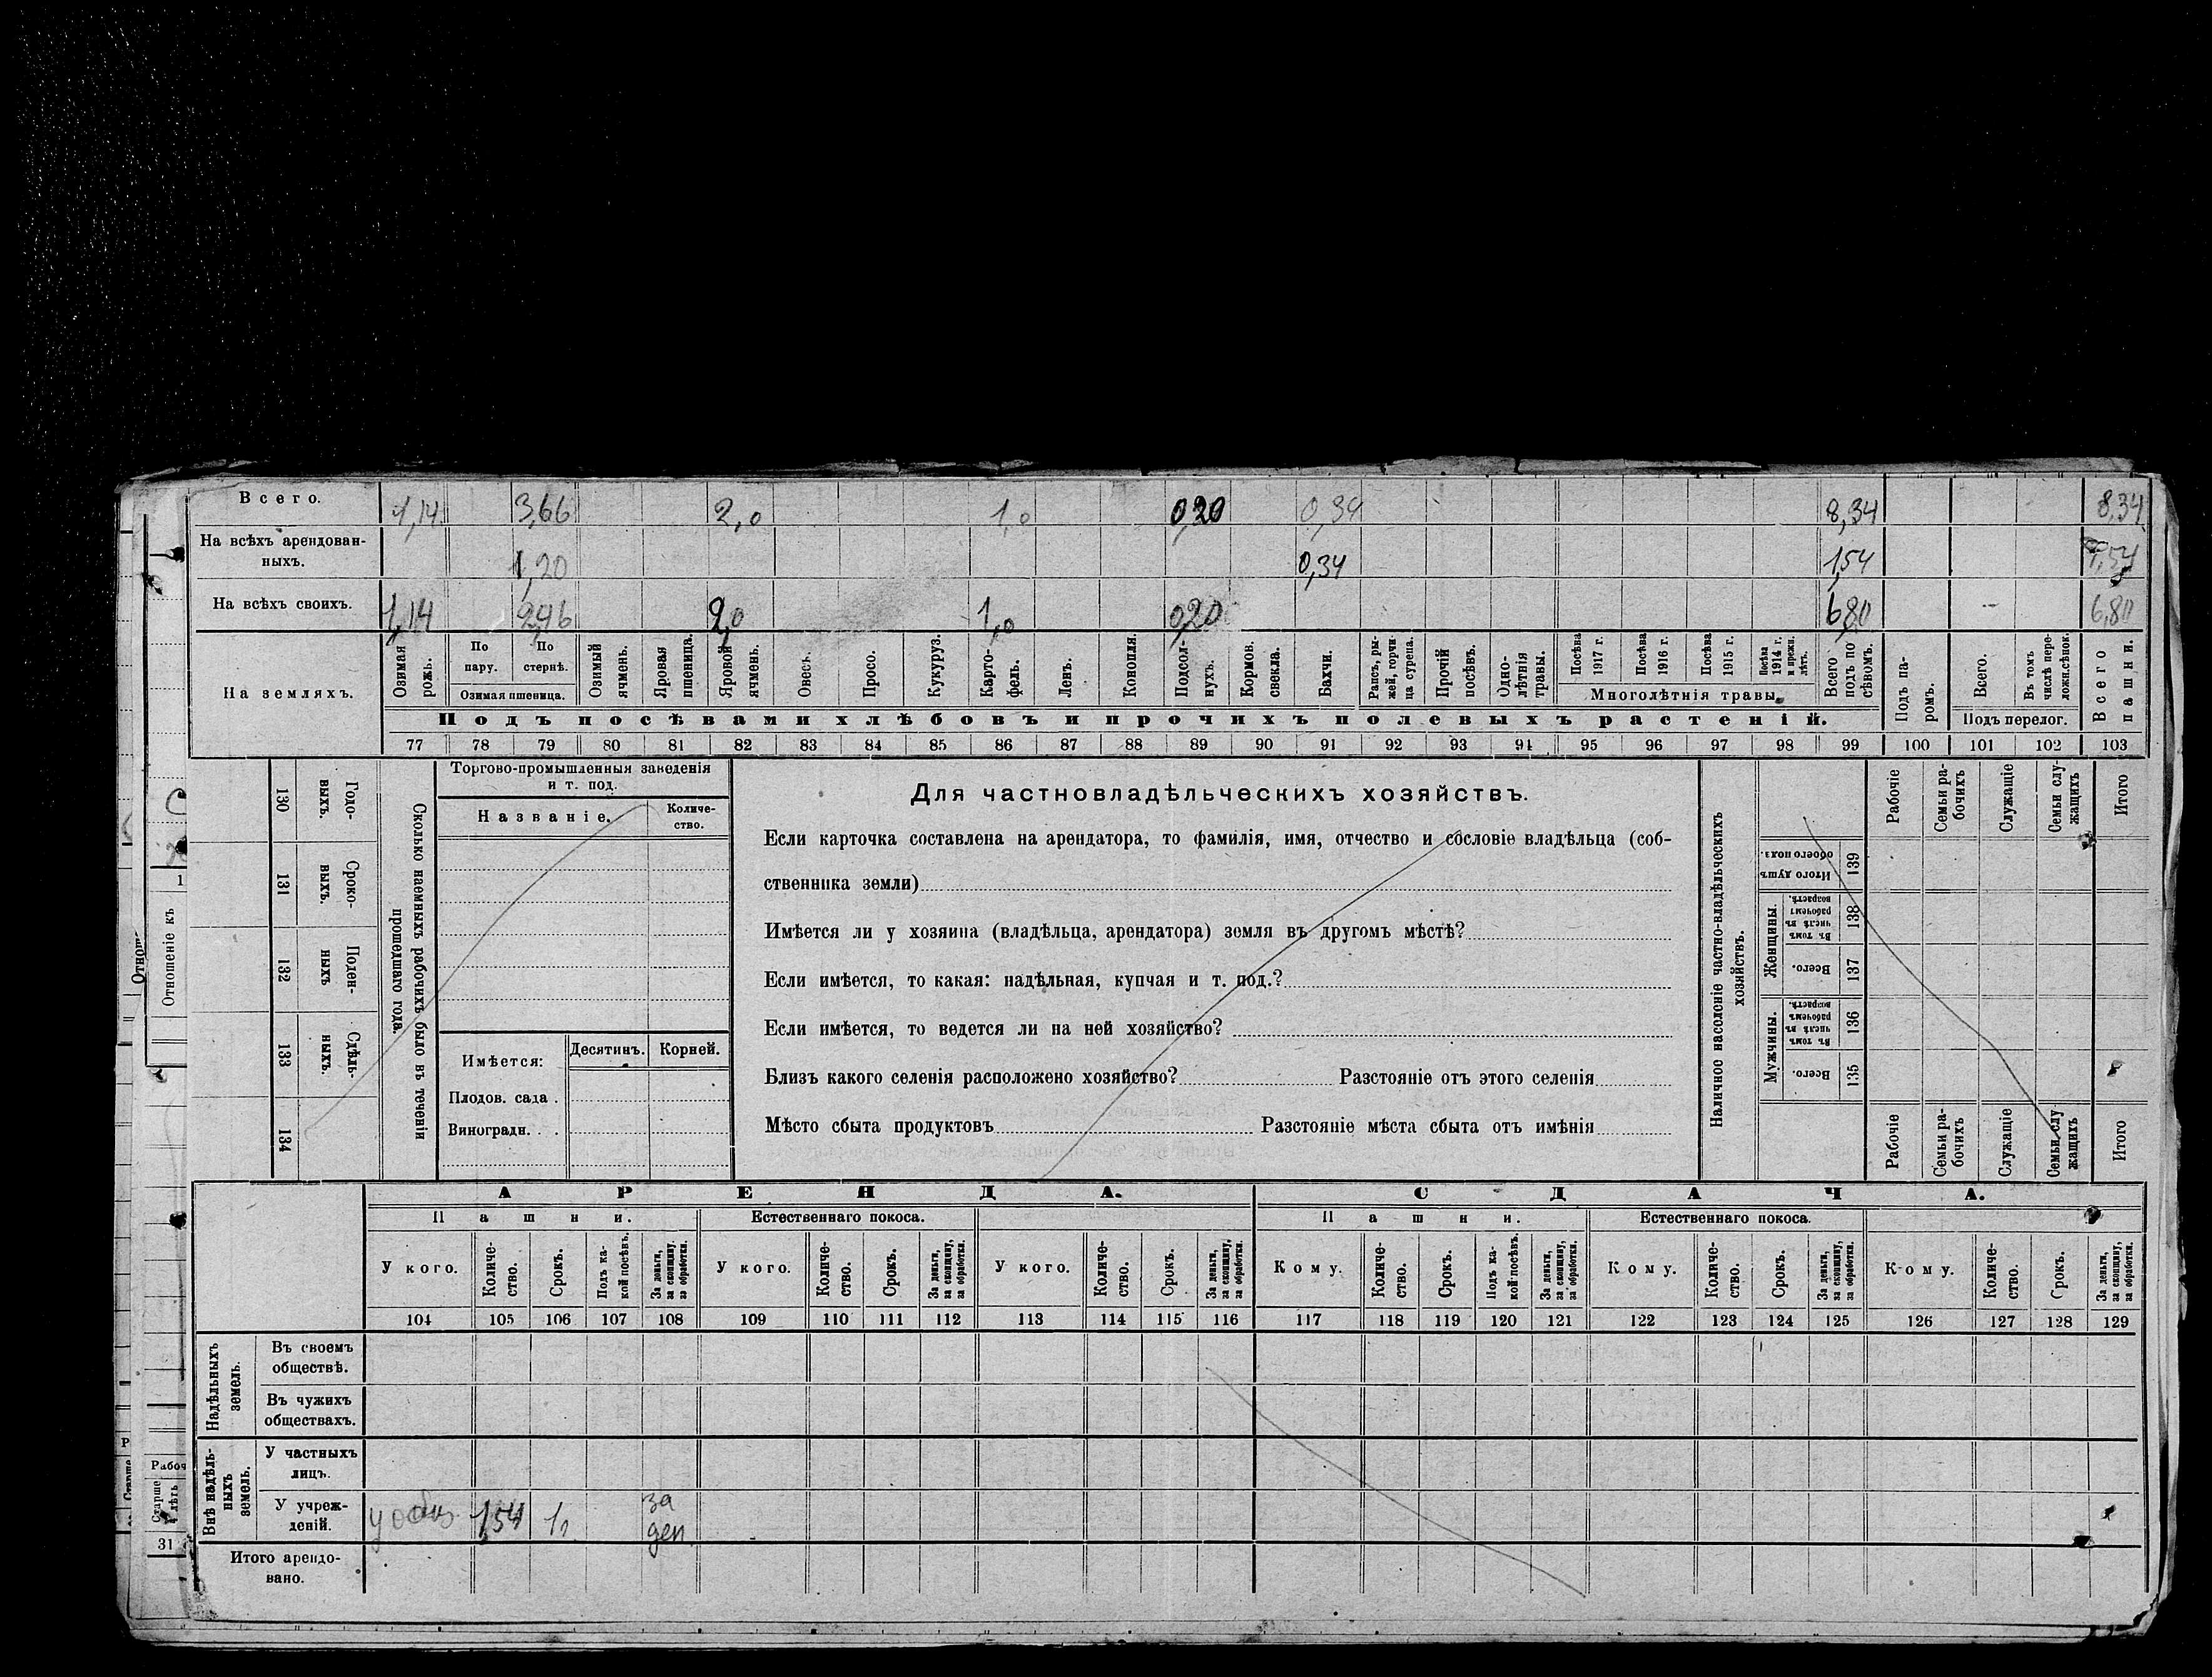 Всего. 1,14 3,66 2,0 1,0 0,20 0,34 8,34 8,34
На всѣхъ арендован-
ныхъ. 1,20 0,34 1,54 1,54
На всѣхъ своихъ. 1,14 2,46 2,0 1,0 0,20 6,80 6,80
На земляхъ.
Озимая рожь.
По пару.
По стернѣ.
Озимая пшеница.
Озимый ячмень.
Яровая пшеница.
Яровой ячмень.
Овесъ.
Просо.
Кукуруз.
Карто-фель.
Ленъ.
Конопля.
Подсол-нухъ.
Кормов. свекла.
Бахчи.
Рапсъ, ры-жей, горчи ца суреца.
Прочій посѣвъ.
Одно-лѣтнія травы.
Посѣва 1917 г.
Посѣва 1916 г.
Посѣва 1915 г.
Посѣва 1914 г. и прежн. лѣтъ.
Многолѣтнія травы.
Всего подъ по сѣвомъ.
Подъ па-ромъ.
Всего.
Въ томъ числѣ пере-ложн.сѣнок.
Подъ перелог.
Всего пашни.
Подъ посѣвами хлѣбовъ и прочихъ полевыхъ растеній.
77 78 79 80 81 82 83 84 85 86 87 88 89 90 91 92 93 94 95 96 97 98 99 100 101 102 103
130 Годо-выхъ.
131 Сроко-выхъ.
132 Поден-ныхъ
133 Сдѣль-ныхъ.
134
Сколько наемныхъ рабочихъ было въ теченіи
прошедшаго года.
Торгово-промышленныя заведенія
и т. под.
Названіе.
Количе-ство.
Имѣется: Десятинъ. Корней.
Плодов. сада .
Виноградн. . .
Для частновладѣльческихъ хозяйствъ.
Если карточка составлена на арендатора, то фамилія, имя, отчество и сословіе владѣльца (соб-
ственника земли)
Имѣется ли у хозяина (владѣльца, арендатора) земля въ другомъ мѣстѣ?
Если имѣется, то какая: надѣльная, купчая и т. под.?
Если имѣется, то ведется ли на ней хозяйство?
Близъ какого селенія расположено хозяйство? Разстояніе отъ этого селенія
Мѣсто сбыта продуктовъ Разстояніе мѣста сбыта отъ имѣнія
Наличное населеніе частно-владѣльческихъ
хозяйствъ.
Итого душъ обоего пола. 139
Женщины.
Въ томъ числѣ въ рабочемъ возрастѣ. 138
Всего. 137
Мужчины.
Въ томъ числѣ въ рабочемъ возрастѣ. 136
Всего. 135
Рабочіе
Семьи ра-бочихъ
Служащіе
Семьи слу-жащихъ
Итого
Рабочіе
Семьи ра-бочихъ
Служащіе
Семьи слу-жащихъ
Итого
АРЕНДА. СДАЧА.
Пашни. Естественнаго покоса. Пашни. Естественнаго покоса.
У кого. Количе-ство. Срокъ. Подъ ка-кой посѣвъ. За деньги, за скопщину, за обработки.
У кого. Количе-ство. Срокъ. За деньги, за скопщину, за обработки.
У кого. Количе-ство. Срокъ. За деньги, за скопщину, за обработки.
Кому. Количе-ство. Срокъ. Подъ ка-кой посѣвъ. За деньги, за скопщину, за обработки.
Кому. Количе-ство. Срокъ. За деньги, за скопщину, за обработки.
Кому. Количе-ство. Срокъ. За деньги, за скопщину, за обработки.
104 105 106 107 108 109 110 111 112 113 114 115 116 117 118 119 120 121 122 123 124 125 126 127 128 129
Надѣльныхъ земель.
Въ своемъ
обществѣ.
Въ чужихъ
обществахъ.
Внѣ надѣль-ныхъ земель.
У частныхъ
лицъ.
У учреж-
деній. 1,54 за
ден
Итого арендо-
вано.
Отношеніе къ
1
Рабоч
Старше
лѣтъ
31